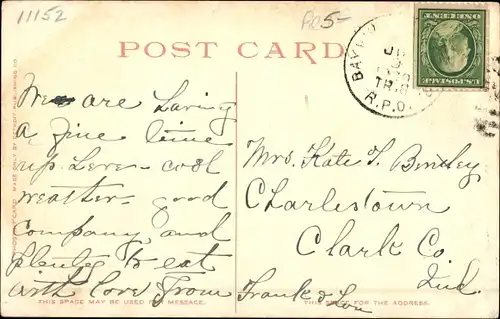 11152
5-
POST CARD
ONE CENT
U.S. POSTAGE
BAY
TR.
R.P.O.
We are having
a fine time
up here - cool
weather - good
company and
plenty to eat
with love from
Frank & Lou
Mrs. Kate T. Bentley
Charlestown
Clark Co.
Ind.
THIS SPACE MAY BE USED FOR MESSAGE.
THIS SPACE FOR THE ADDRESS.